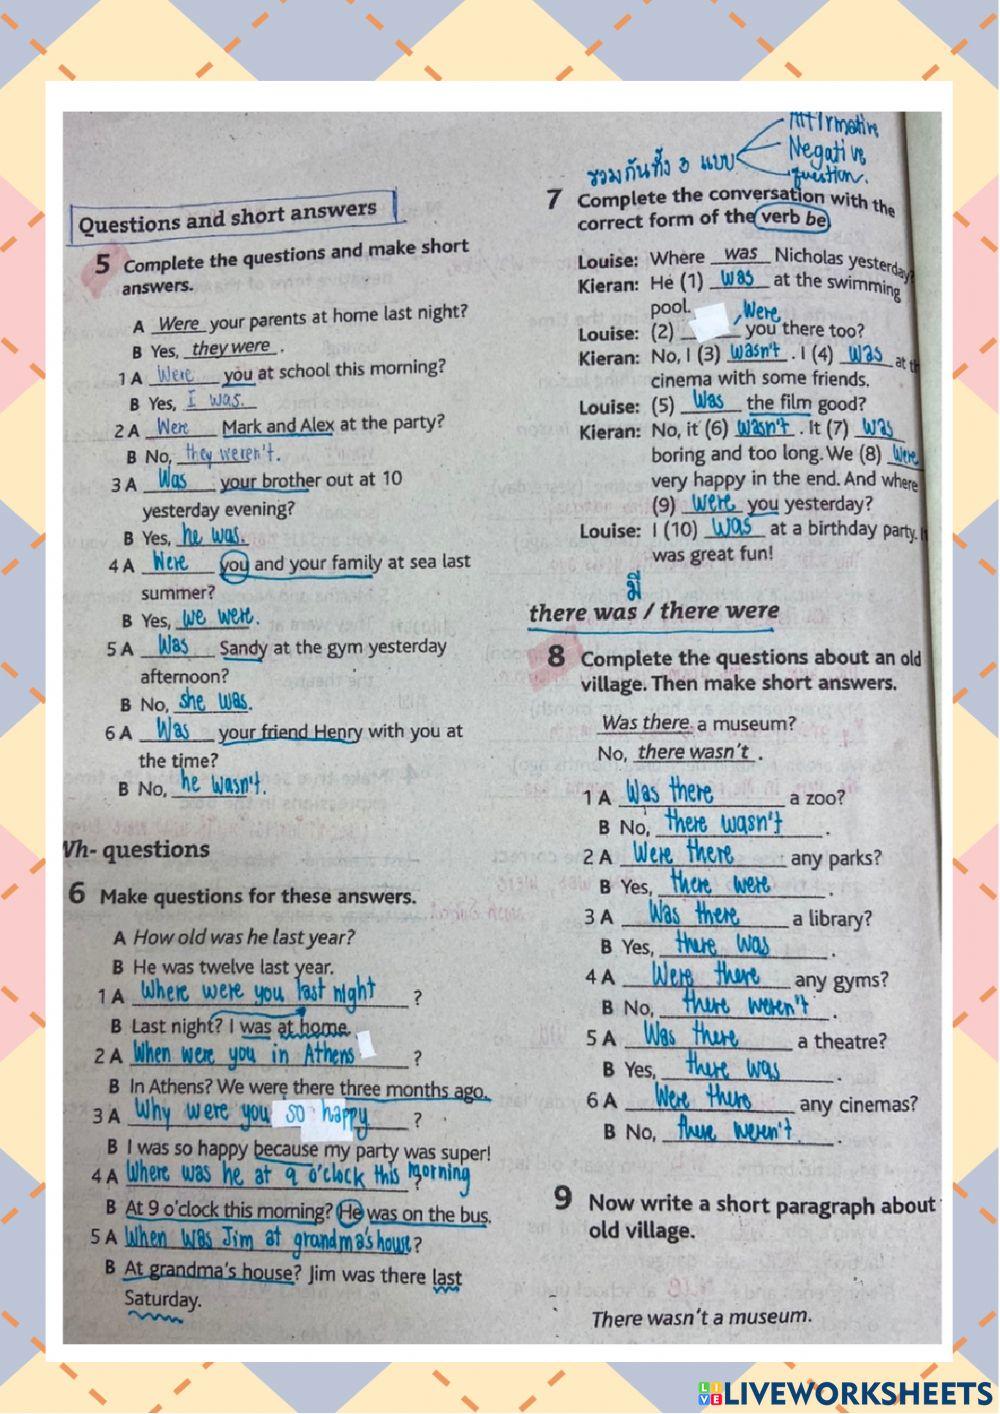 Questions and short answers
5 Complete the questions and make short
answers.
A Were your parents at home last night?
B Yes, they were.
1 A Were you at school this morning?
B Yes, I was.
2 A Were Mark and Alex at the party?
B No, they weren't.
3 A Was your brother out at 10
yesterday evening?
B Yes, he was.
4 A Were you and your family at sea last
summer?
B Yes, we were.
5 A Was Sandy at the gym yesterday
afternoon?
B No, she was.
6 A Was your friend Henry with you at
the time?
B No, he wasn't.
Wh- questions
6 Make questions for these answers.
A How old was he last year?
B He was twelve last year.
1 A Where were you last night ?
B Last night? I was at home.
2 A When were you in Athens ?
B In Athens? We were there three months ago.
3 A Why were you so happy ?
B I was so happy because my party was super!
4 A Where was he at 9 o'clock this morning ?
B At 9 o'clock this morning? He was on the bus.
5 A When was Jim at grandma's house ?
B At grandma's house? Jim was there last
Saturday.
รวมกันทั้ง 3 แบบ
Affirmative
Negative
question.
7 Complete the conversation with the
correct form of the verb be
Louise: Where was Nicholas yesterday?
Kieran: He (1) was at the swimming
pool.
Were
Louise: (2) you there too?
Kieran: No, I (3) wasn't. I (4) was at th
cinema with some friends.
Louise: (5) Was the film good?
Kieran: No, it (6) wasn't. It (7) was
boring and too long. We (8) were
very happy in the end. And where
(9) were you yesterday?
Louise: I (10) was at a birthday party. I
was great fun!
มี
there was / there were
8 Complete the questions about an old
village. Then make short answers.
Was there a museum?
No, there wasn't.
1 A Was there a zoo?
B No, there wasn't.
2 A Were there any parks?
B Yes, there were.
3 A Was there a library?
B Yes, there was.
4 A Were there any gyms?
B No, there weren't.
5 A Was there a theatre?
B Yes, there was.
6 A Were there any cinemas?
B No, there weren't.
9 Now write a short paragraph about
old village.
There wasn't a museum.
LIVEWORKSHEETS